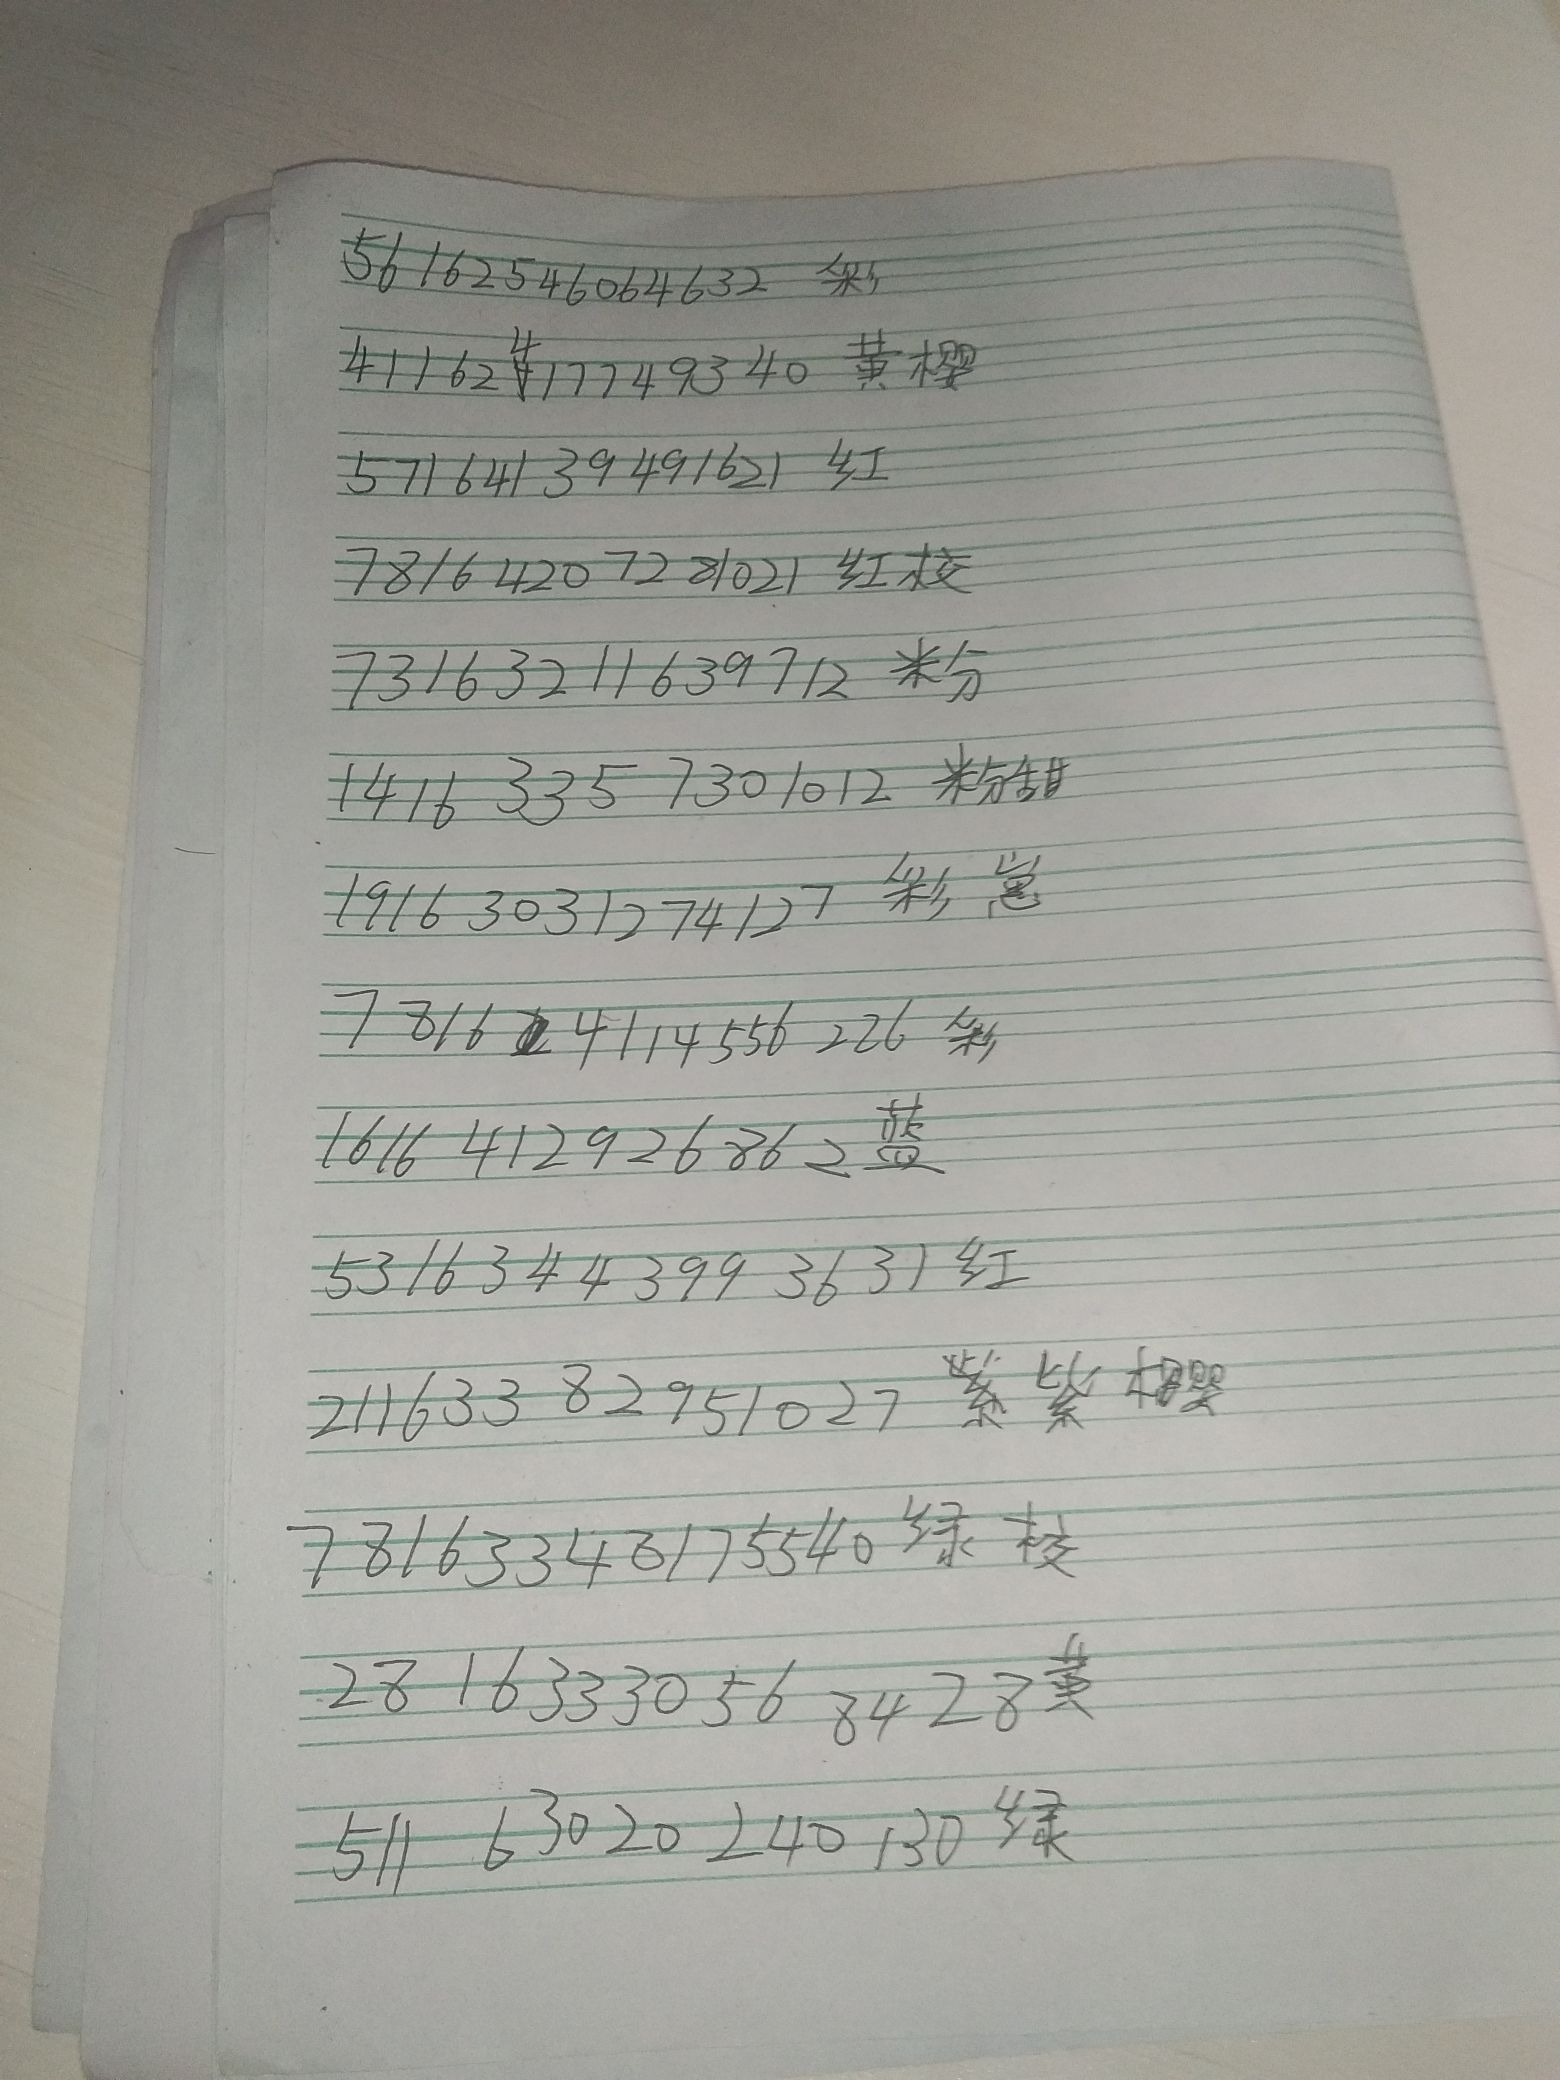 56162546064632 彩
411624177749340 黄樱
57164139491621 红
78164207281021 红校
73163211639712 粉
14163357301012 粉甜
19163031274127 彩
781624114556226 彩
1616412926862 蓝
53163443993631 红
21163382951027 紫 紫 樱
78163348175540 绿 校
28163330568428 黄
51163020240130 绿